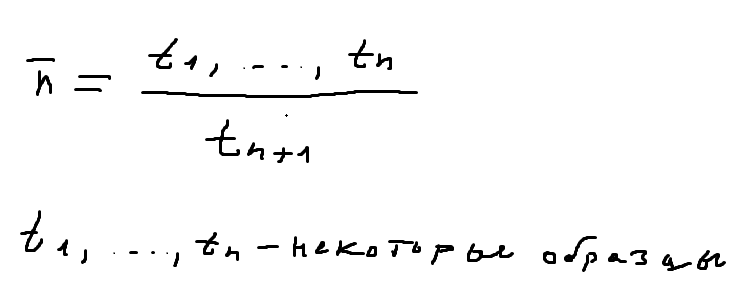 n̄ = t₁, ..., tₙ / tₙ₊₁
t₁, ..., tₙ – некоторые образцы